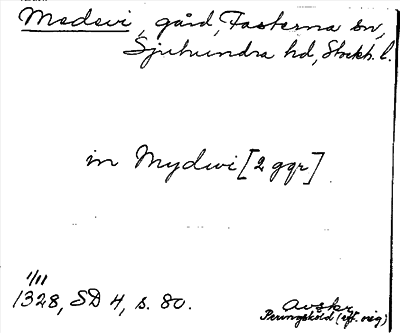 Medevi, gård, Fasterna sn,
Sjuhundra hd, Stockh. l.
in Mydwi [2 ggr]
1/11
1328, SD 4, s. 80.
Avskr
Peringskiöld (eft. orig)